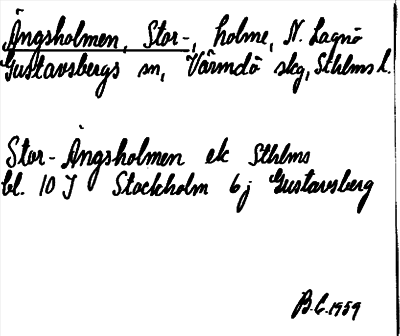 Ängsholmen, Stor-, holme, N. Lagnö
Gustavsbergs sn, Värmdö skg, Sthlms l.
Stor-Ängsholmen ek Sthlms
bl. 10 J Stockholm 6j Gustavsberg
B.C. 1959